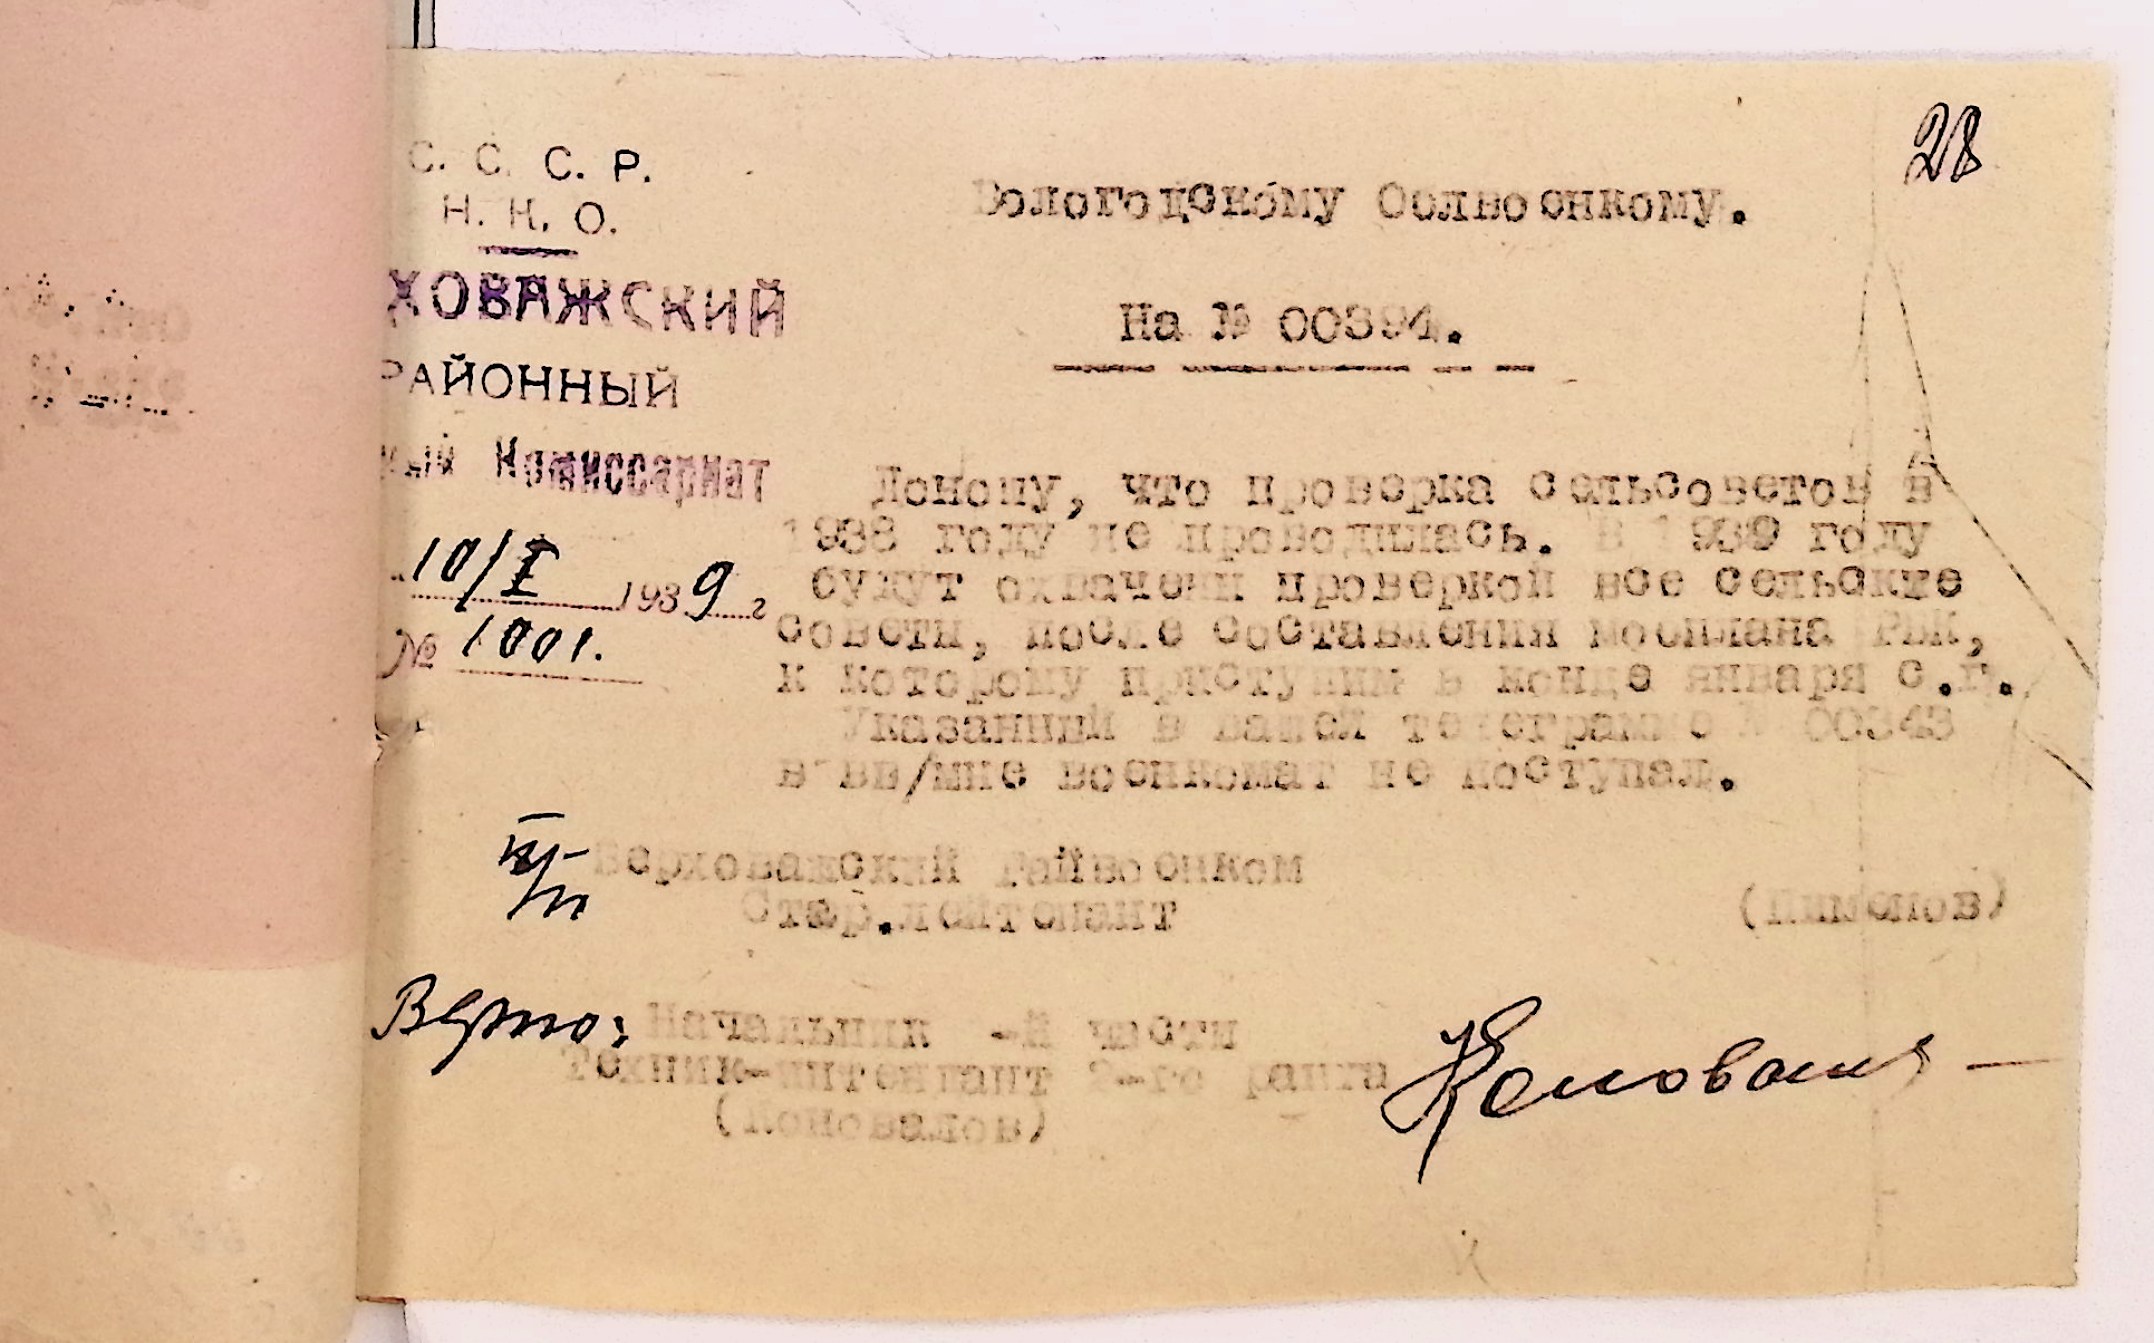 28
С. С. С. Р.
Н. К. О.
ХОВАЖСКИЙ
РАЙОННЫЙ
ный Комиссариат
"10/I 1939 г
№ 1001.
Вологодскому Облвоенкому.
На № 00394.
Доношу, что проверка сельсоветов в
1938 году не проводилась. В 1939 году
будут охвачены проверкой все сельские
советы, после составления мобплана РВК,
к которому приступим в конце января с.г.
Указанный в вашей телеграмме № 00343
в вв/мне военкомат не поступал.
п/п Верховажский Райвоенком
Стар.лейтенант (Пименов)
Верно: Начальник -й части
Техник-интендант 2-го ранга
(Коновалов)